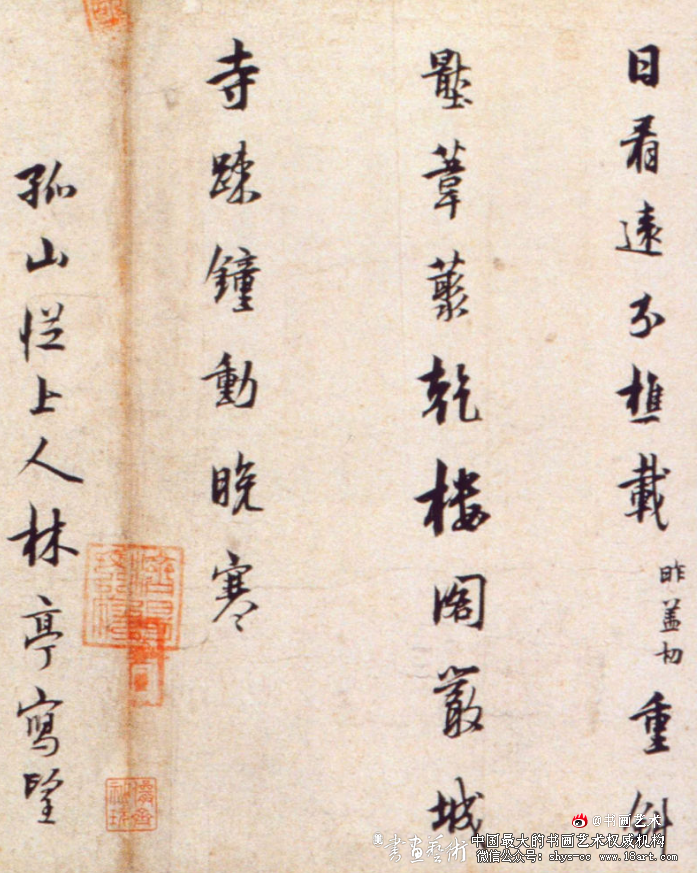 日看遠分樵載昨盖切重斜
壓葦叢乾樓閣嚴城
寺疎鐘動晚寒
孤山從上人林亭寫望
@书画艺术
書畫藝術
中国最大的书画艺术权威机构
微信公众号：shys-cc www.18art.com